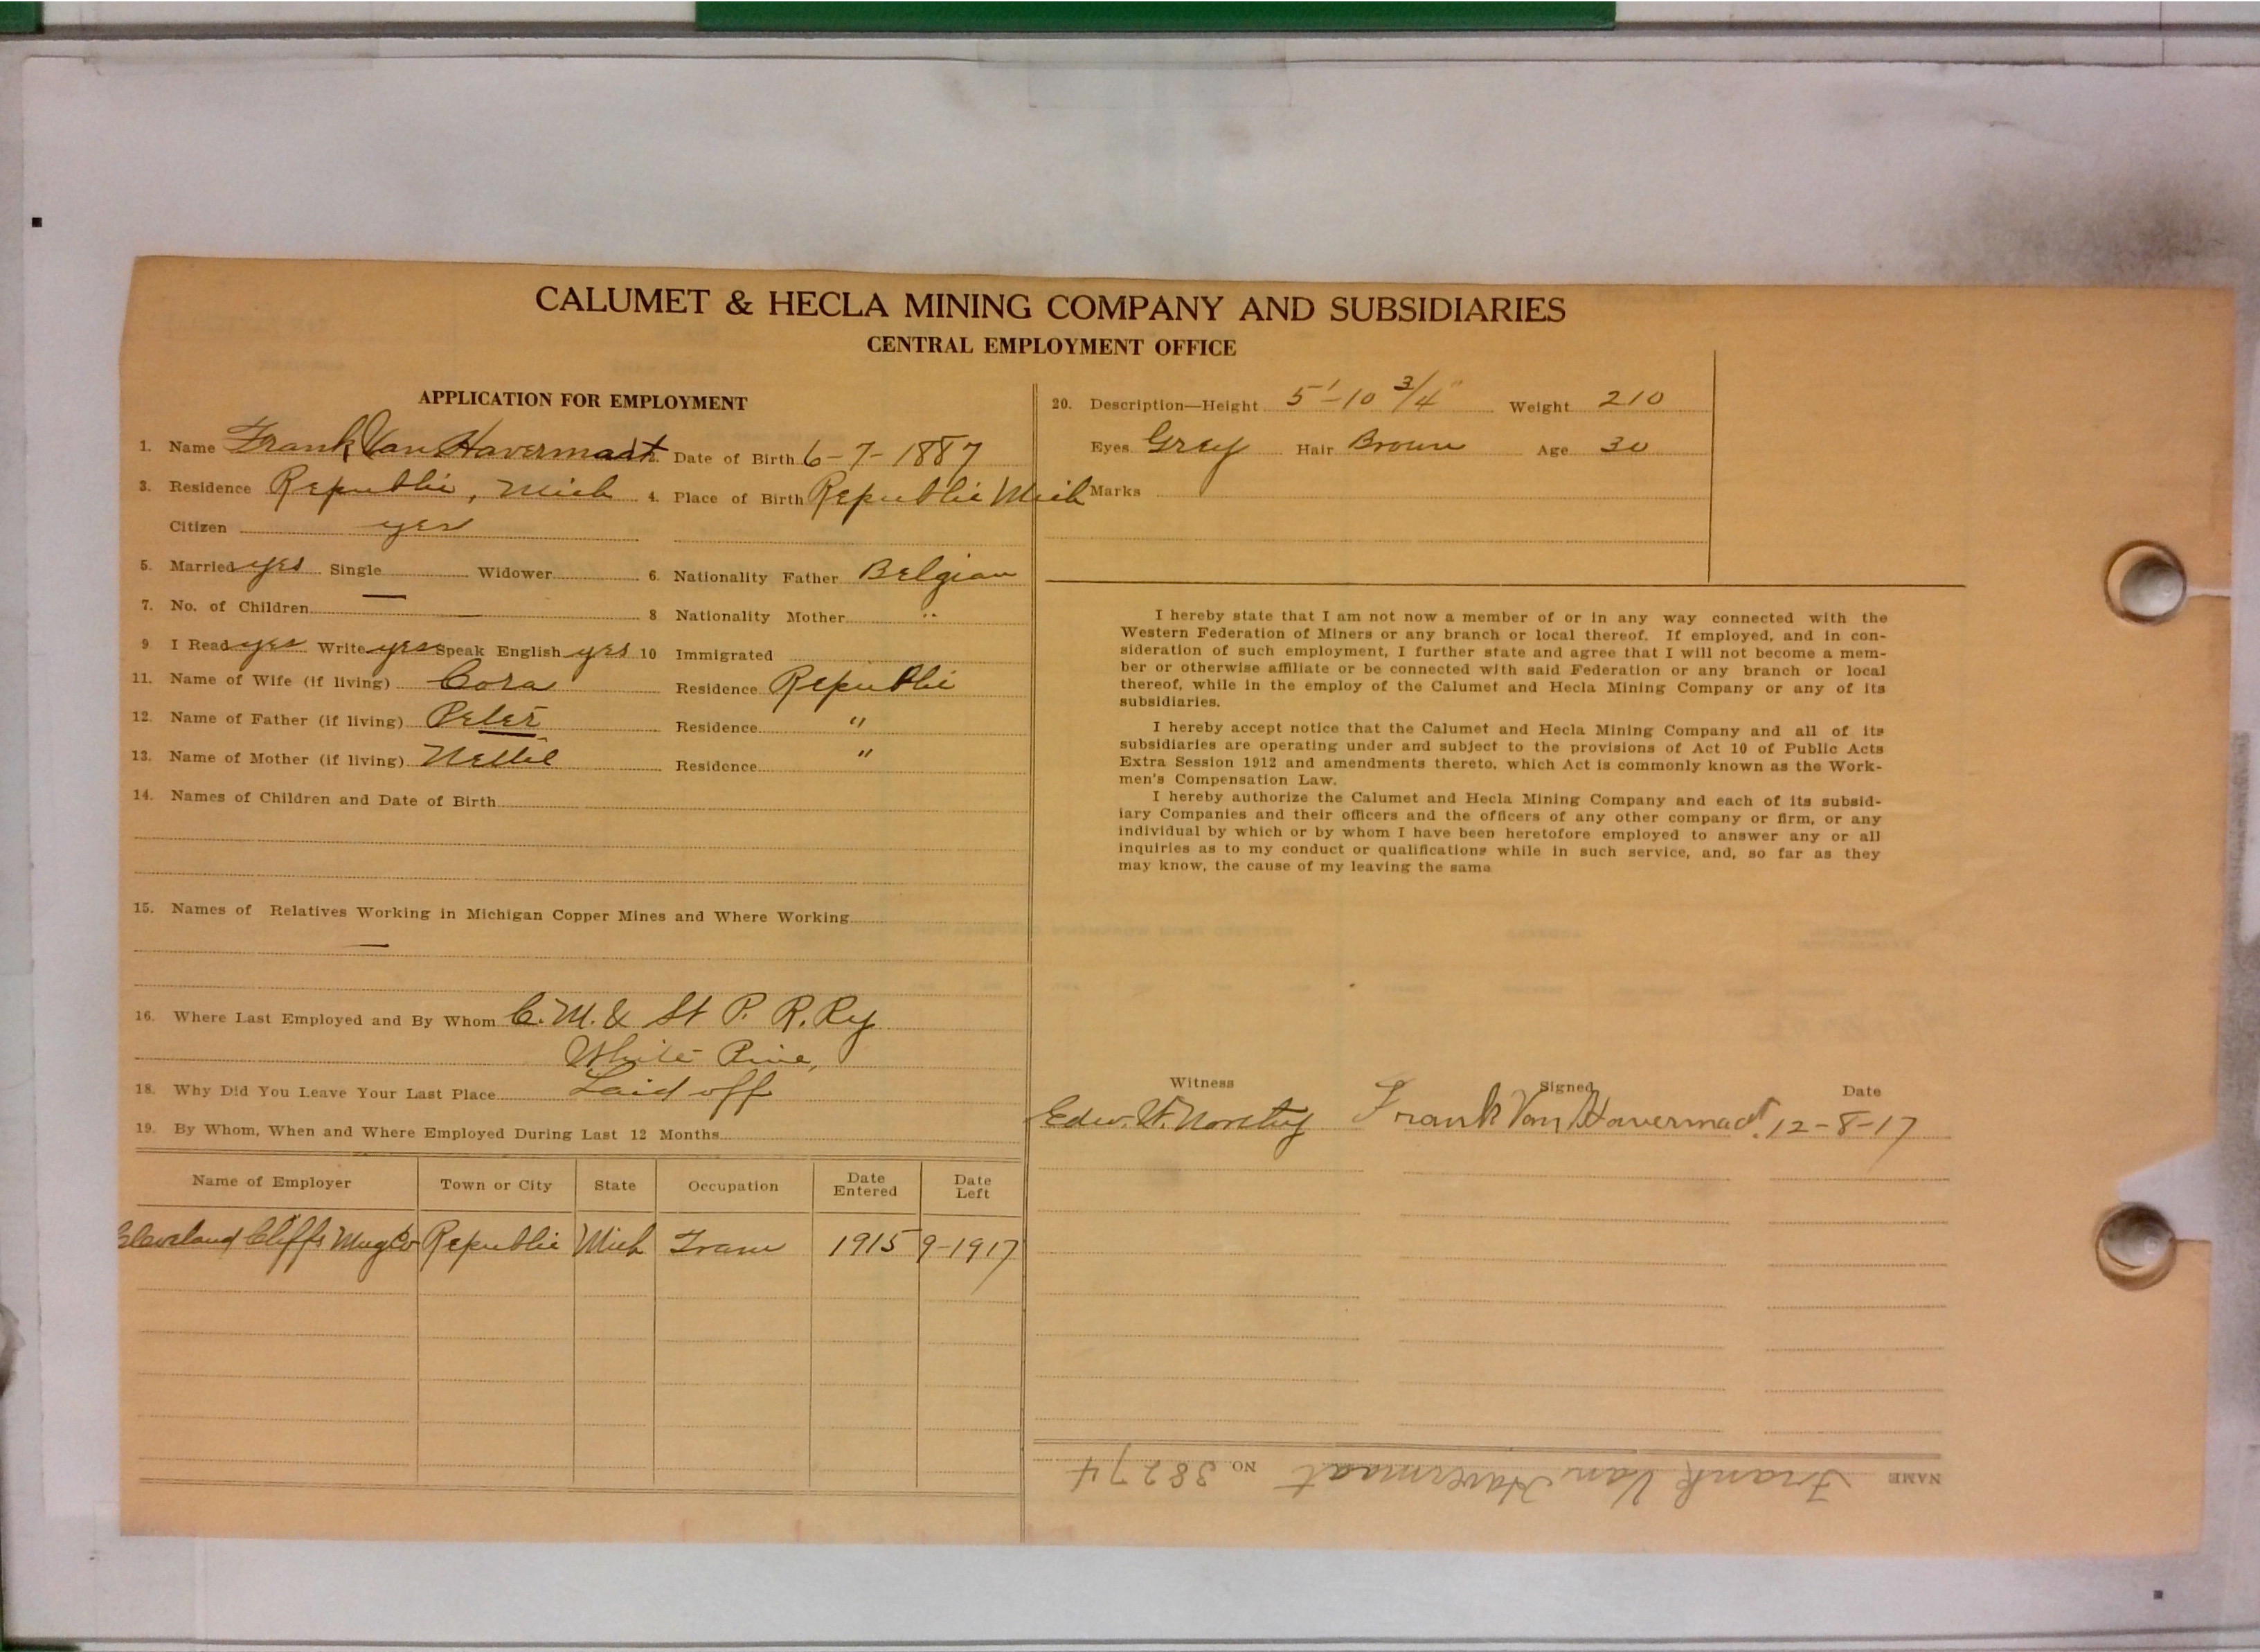 CALUMET & HECLA MINING COMPANY AND SUBSIDIARIES
CENTRAL EMPLOYMENT OFFICE
APPLICATION FOR EMPLOYMENT
1. Name Frank Van Havermaat 2. Date of Birth 6-7-1887
3. Residence Republic, Mich 4. Place of Birth Republic Mich
Citizen yes
5. Married yes Single — Widower 6. Nationality Father Belgian
7. No. of Children 8 Nationality Mother "
9 I Read yes Write yes Speak English yes 10 Immigrated
11. Name of Wife (if living) Cora Residence Republic
12. Name of Father (if living) Peter Residence "
13. Name of Mother (if living) Nellie Residence "
14. Names of Children and Date of Birth
15. Names of Relatives Working in Michigan Copper Mines and Where Working
—
16. Where Last Employed and By Whom C. M. & St P. R. Ry
White Pine,
18. Why Did You Leave Your Last Place Laid off
19. By Whom, When and Where Employed During Last 12 Months
Name of Employer Town or City State Occupation Date Entered Date Left
Cleveland Cliffs Mng Co Republic Mich Tram 1915 9-1917
20. Description—Height 5'-10 3/4" Weight 210
Eyes Grey Hair Brown Age 30
Marks
I hereby state that I am not now a member of or in any way connected with the
Western Federation of Miners or any branch or local thereof. If employed, and in con-
sideration of such employment, I further state and agree that I will not become a mem-
ber or otherwise affiliate or be connected with said Federation or any branch or local
thereof, while in the employ of the Calumet and Hecla Mining Company or any of its
subsidiaries.
I hereby accept notice that the Calumet and Hecla Mining Company and all of its
subsidiaries are operating under and subject to the provisions of Act 10 of Public Acts
Extra Session 1912 and amendments thereto, which Act is commonly known as the Work-
men's Compensation Law.
I hereby authorize the Calumet and Hecla Mining Company and each of its subsid-
iary Companies and their officers and the officers of any other company or firm, or any
individual by which or by whom I have been heretofore employed to answer any or all
inquiries as to my conduct or qualifications while in such service, and, so far as they
may know, the cause of my leaving the same
Witness Signed Date
Edw. Frank Van Havermaat 12-8-17
NAME Frank Van Havermaat NO 38274